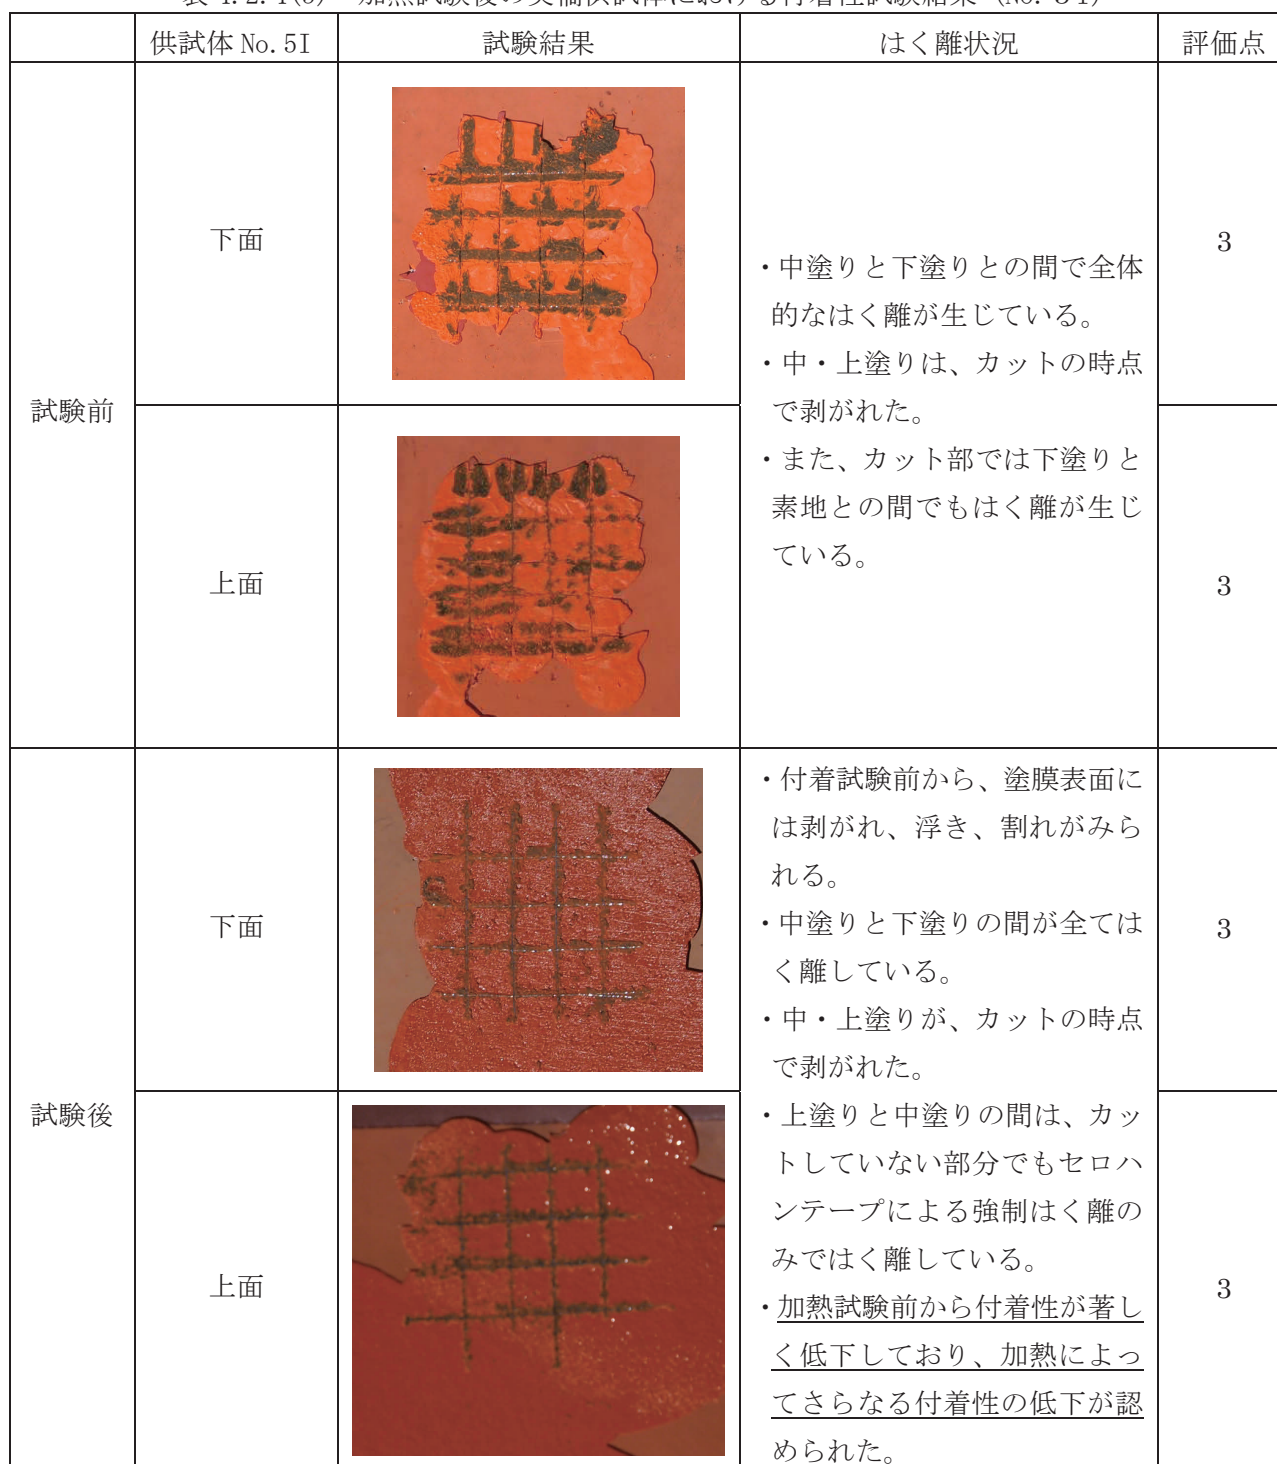 供試体 No.5I 試験結果 はく離状況 評価点
試験前
下面
・中塗りと下塗りとの間で全体
的なはく離が生じている。
・中・上塗りは、カットの時点
で剥がれた。
・また、カット部では下塗りと
素地との間でもはく離が生じ
ている。
3
上面
3
試験後
下面
・付着試験前から、塗膜表面に
は剥がれ、浮き、割れがみら
れる。
・中塗りと下塗りの間が全ては
く離している。
・中・上塗りが、カットの時点
で剥がれた。
・上塗りと中塗りの間は、カッ
トしていない部分でもセロハ
ンテープによる強制はく離の
みではく離している。
・加熱試験前から付着性が著し
く低下しており、加熱によっ
てさらなる付着性の低下が認
められた。
3
上面
3